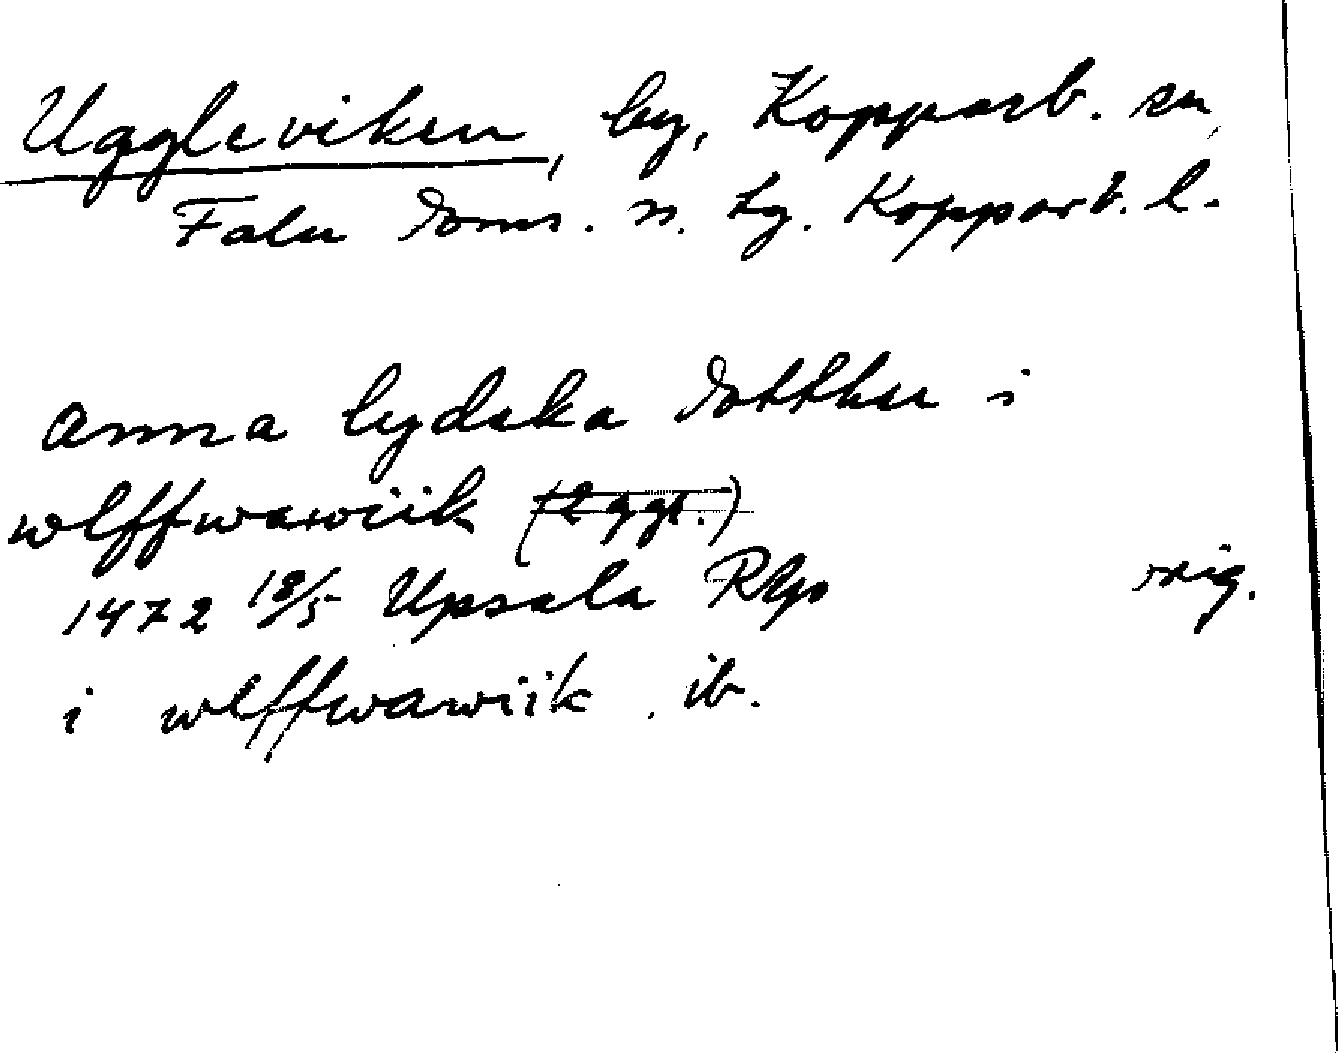 Uggleviken, by, Kopparb. sn,
Falu doms. n. tg. Kopparb. l.
Anna lydeka dotther i
wlffwawiik (2 ggr.)
1472 18/5 Upsala RAp orig.
i wlffwawiik . ib.